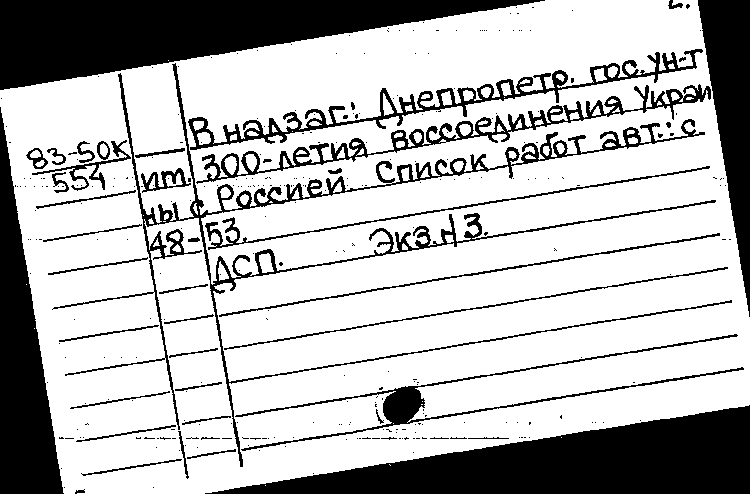 2.
В надзаг.: Днепропетр. гос. ун-т
83-50К
554
им. 300-летия воссоединения Украи
ны с Россией. Список работ авт.: с.
48-53.
ДСП. Экз.N3.